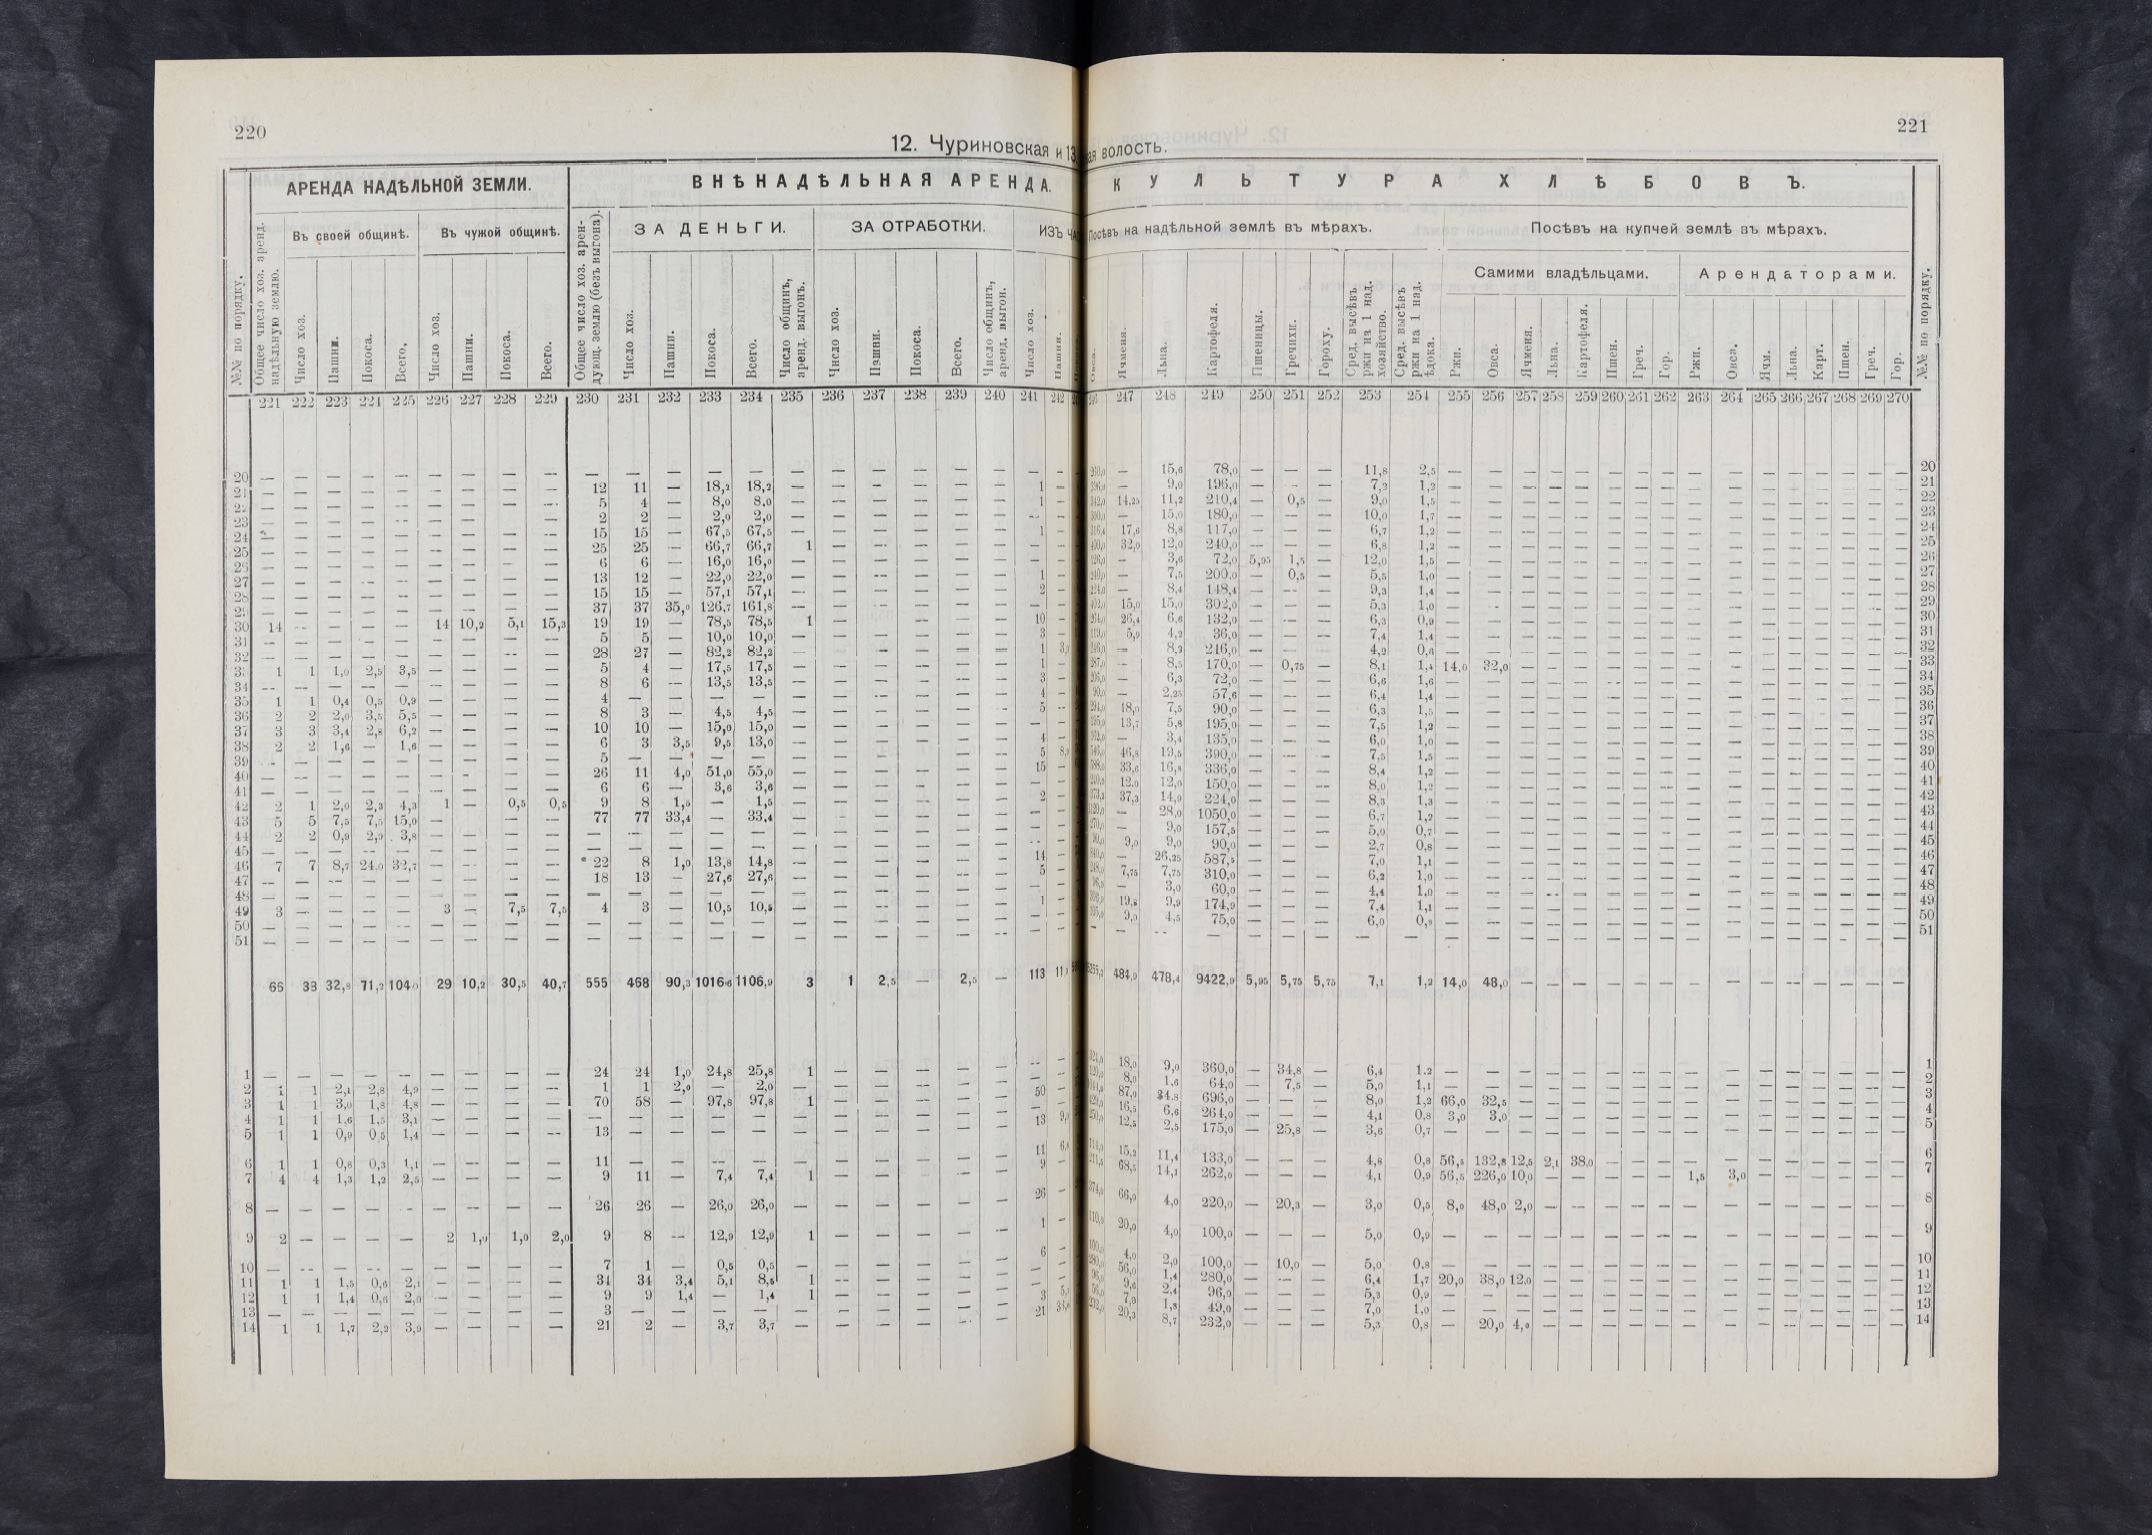 220
12. Чуриновская и 13
АРЕНДА НАДѢЛЬНОЙ ЗЕМЛИ.
ВНѢНАДѢЛЬНАЯ АРЕНДА.
Въ своей общинѣ. Въ чужой общинѣ. ЗА ДЕНЬГИ. ЗА ОТРАБОТКИ. ИЗЪ
№№ по порядку. Общее число хоз. аренд. надѣльную землю. Число хоз. Пашни. Покоса. Всего. Число хоз. Пашни. Покоса. Всего. Общее число хоз. арендующ. землю (безъ выгона). Число хоз. Пашни. Покоса. Всего. Число общинъ, аренд. выгонъ. Число хоз. Пашни. Покоса. Всего. Число общинъ, аренд. выгон. Число хоз. Пашни.
221 222 223 224 225 226 227 228 229 230 231 232 233 234 235 236 237 238 239 240 241 242
20 — — — — — — — — — — — — — — — — — — — — —
21 — — — — — — — — — 12 11 — 18,2 18,2 — — — — — — 1
22 — — — — — — — — — 5 4 — 8,0 8,0 — — — — — — 1
23 — — — — — — — — — 2 2 — 2,0 2,0 — — — — — — —
24 — — — — — — — — — 15 15 — 67,5 67,5 — — — — — — 1
25 — — — — — — — — — 25 25 — 66,7 66,7 1 — — — — — —
26 — — — — — — — — — 6 6 — 16,0 16,0 — — — — — — —
27 — — — — — — — — — 13 12 — 22,0 22,0 — — — — — — 1
28 — — — — — — — — — 15 15 — 57,1 57,1 — — — — — — 2
29 — — — — — — — — — 37 37 35,0 126,7 161,8 — — — — — — —
30 14 — — — — 14 10,2 5,1 15,3 19 19 — 78,5 78,5 1 — — — — — 10
31 — — — — — — — — — 5 5 — 10,0 10,0 — — — — — — 3
32 — — — — — — — — — 28 27 — 82,2 82,2 — — — — — — 1
33 1 1 1,0 2,5 3,5 — — — — 5 4 — 17,5 17,5 — — — — — — 1
34 — — — — — — — — — 8 6 — 13,5 13,5 — — — — — — 3
35 1 1 0,4 0,5 0,9 — — — — 4 — — — — — — — — — — 4
36 2 2 2,0 3,5 5,5 — — — — 8 3 — 4,5 4,5 — — — — — — 5
37 3 3 3,4 2,8 6,2 — — — — 10 10 — 15,0 15,0 — — — — — — —
38 2 2 1,6 — 1,6 — — — — 6 3 3,5 9,5 13,0 — — — — — — 4
39 — — — — — — — — — 5 — — — — — — — — — — 5
40 — — — — — — — — — 26 11 4,0 51,0 55,0 — — — — — — 15
41 — — — — — — — — — 6 6 — 3,6 3,6 — — — — — — —
42 2 1 2,0 2,3 4,3 1 — 0,5 0,5 9 8 1,5 — 1,5 — — — — — — 2
43 5 5 7,5 7,5 15,0 — — — — 77 77 33,4 — 33,4 — — — — — — —
44 2 2 0,9 2,9 3,8 — — — — — — — — — — — — — — — —
45 — — — — — — — — — — — — — — — — — — — — —
46 7 7 8,7 24,0 32,7 — — — — 22 8 1,0 13,8 14,8 — — — — — — 14
47 — — — — — — — — — 18 13 — 27,6 27,6 — — — — — — 5
48 — — — — — — — — — — — — — — — — — — — — —
49 3 — — — — 3 — 7,5 7,5 4 3 — 10,5 10,5 — — — — — — 1
50 — — — — — — — — — — — — — — — — — — — — —
51 — — — — — — — — — — — — — — — — — — — — —
66 33 32,8 71,2 104,0 29 10,2 30,5 40,7 555 468 90,3 1016,6 1106,9 3 1 2,5 — 2,5 — 113
1 — — — — — — — — — 24 24 1,0 24,8 25,8 1 — — — — — —
2 1 1 2,1 2,8 4,9 — — — — 1 1 2,0 — 2,0 — — — — — — —
3 1 1 3,0 1,8 4,8 — — — — 70 58 — 97,8 97,8 1 — — — — — 50
4 1 1 1,6 1,5 3,1 — — — — — — — — — — — — — — — —
5 1 1 0,9 0,5 1,4 — — — — 13 — — — — — — — — — — 13
6 1 1 0,8 0,3 1,1 — — — — 11 — — — — — — — — — — 11
7 4 4 1,3 1,2 2,5 — — — — 9 11 — 7,4 7,4 1 — — — — — 9
8 — — — — — — — — — 26 26 — 26,0 26,0 — — — — — — 26
9 2 — — — — 2 1,0 1,0 2,0 9 8 — 12,9 12,9 1 — — — — — 1
10 — — — — — — — — — 7 1 — 0,5 0,5 — — — — — — 6
11 1 1 1,5 0,6 2,1 — — — — 34 34 3,4 5,1 8,5 1 — — — — — —
12 1 1 1,4 0,6 2,0 — — — — 9 9 1,4 — 1,4 1 — — — — — —
13 — — — — — — — — — 3 — — — — — — — — — — 3
14 1 1 1,7 2,2 3,9 — — — — 21 2 — 3,7 3,7 — — — — — — 21
221
ая волость.
КУЛЬТУРА ХЛѢБОВЪ.
Посѣвъ на надѣльной землѣ въ мѣрахъ. Посѣвъ на купчей землѣ въ мѣрахъ.
Самими владѣльцами. Арендаторами.
Овса. Ячменя. Льна. Картофеля. Пшеницы. Гречихи. Гороху. Сред. высѣвъ ржи из 1 над. хозяйство. Сред. высѣвъ ржи на 1 над. ѣдока. Ржи. Овса. Ячменя. Льна. Картофеля. Пшен. Греч. Гор. Ржи. Овса. Ячм. Льна. Карт. Пшен. Греч. Гор. №№ по порядку.
247 248 249 250 251 252 253 254 255 256 257 258 259 260 261 262 263 264 265 266 267 268 269 270
— 15,6 78,0 — — — 11,8 2,5 — — — — — — — — — — — — — — — — 20
— 9,0 196,0 — — — 7,2 1,2 — — — — — — — — — — — — — — — — 21
14,25 11,2 210,4 — 0,5 — 9,0 1,5 — — — — — — — — — — — — — — — — 22
— 15,0 180,0 — — — 10,0 1,7 — — — — — — — — — — — — — — — — 23
17,6 8,8 117,0 — — — 6,7 1,2 — — — — — — — — — — — — — — — — 24
32,0 12,0 240,0 — — — 6,8 1,2 — — — — — — — — — — — — — — — — 25
— 3,6 72,0 5,95 1,5 — 12,0 1,5 — — — — — — — — — — — — — — — — 26
— 7,5 200,0 — 0,5 — 5,5 1,0 — — — — — — — — — — — — — — — — 27
— 8,4 148,4 — — — 9,3 1,4 — — — — — — — — — — — — — — — — 28
15,0 15,0 302,0 — — — 5,3 1,0 — — — — — — — — — — — — — — — — 29
26,4 6,6 132,0 — — — 6,3 0,9 — — — — — — — — — — — — — — — — 30
5,9 4,2 36,0 — — — 7,4 1,4 — — — — — — — — — — — — — — — — 31
— 8,2 246,0 — — — 4,2 0,8 — — — — — — — — — — — — — — — — 32
— 8,5 170,0 — 0,75 — 8,1 1,4 14,0 32,0 — — — — — — — — — — — — — — 33
— 6,3 72,0 — — — 6,6 1,6 — — — — — — — — — — — — — — — — 34
— 2,25 57,6 — — — 6,4 1,4 — — — — — — — — — — — — — — — — 35
18,0 7,5 90,0 — — — 6,3 1,5 — — — — — — — — — — — — — — — — 36
13,7 5,8 195,0 — — — 7,5 1,2 — — — — — — — — — — — — — — — — 37
— 3,4 135,0 — — — 6,0 1,0 — — — — — — — — — — — — — — — — 38
46,8 19,5 390,0 — — — 7,5 1,5 — — — — — — — — — — — — — — — — 39
33,6 16,8 336,0 — — — 8,4 1,2 — — — — — — — — — — — — — — — — 40
12,0 12,0 150,0 — — — 8,0 1,2 — — — — — — — — — — — — — — — — 41
37,3 14,9 224,0 — — — 8,3 1,3 — — — — — — — — — — — — — — — — 42
— 28,0 1050,0 — — — 6,7 1,2 — — — — — — — — — — — — — — — — 43
— 9,0 157,5 — — — 5,0 0,7 — — — — — — — — — — — — — — — — 44
9,0 9,0 90,0 — — — 2,7 0,8 — — — — — — — — — — — — — — — — 45
— 26,25 587,5 — — — 7,0 1,1 — — — — — — — — — — — — — — — — 46
7,75 7,75 310,0 — — — 6,2 1,0 — — — — — — — — — — — — — — — — 47
— 3,0 60,0 — — — 4,4 1,0 — — — — — — — — — — — — — — — — 48
19,8 9,9 174,9 — — — 7,4 1,1 — — — — — — — — — — — — — — — — 49
9,0 4,5 75,0 — — — 6,0 0,9 — — — — — — — — — — — — — — — — 50
— — — — — — — — — — — — — — — — — — — — — — — — 51
484,9 478,4 9422,9 5,95 5,75 5,75 7,1 1,2 14,0 48,0 — — — — — — — — — — — — — —
18,0 9,0 360,0 — 34,8 — 6,4 1,2 — — — — — — — — — — — — — — — — 1
8,0 1,6 64,0 — 7,5 — 5,0 1,1 — — — — — — — — — — — — — — — — 2
87,0 34,8 696,0 — — — 8,0 1,2 66,0 32,5 — — — — — — — — — — — — — — 3
16,5 6,6 264,0 — — — 4,1 0,8 3,0 3,0 — — — — — — — — — — — — — — 4
12,5 2,5 175,0 — 25,8 — 3,6 0,7 — — — — — — — — — — — — — — — — 5
15,2 11,4 133,0 — — — 4,8 0,8 56,5 132,8 12,5 2,1 38,0 — — — — — — — — — — — 6
68,5 14,1 262,0 — — — 4,1 0,9 56,5 226,0 10,0 — — — — — 1,5 3,0 — — — — — — 7
66,0 4,0 220,0 — 20,3 — 3,0 0,5 8,0 48,0 2,0 — — — — — — — — — — — — — 8
20,0 4,0 100,0 — — — 5,0 0,9 — — — — — — — — — — — — — — — — 9
4,0 2,0 100,0 — 10,0 — 5,0 0,8 — — — — — — — — — — — — — — — — 10
56,0 1,4 280,0 — — — 6,4 1,7 20,0 38,0 12,0 — — — — — — — — — — — — — 11
9,6 2,4 96,0 — — — 5,3 0,9 — — — — — — — — — — — — — — — — 12
7,0 1,8 49,0 — — — 7,0 1,0 — — — — — — — — — — — — — — — — 13
20,3 8,7 232,0 — — — 5,3 0,8 — 20,0 4,0 — — — — — — — — — — — — — 14